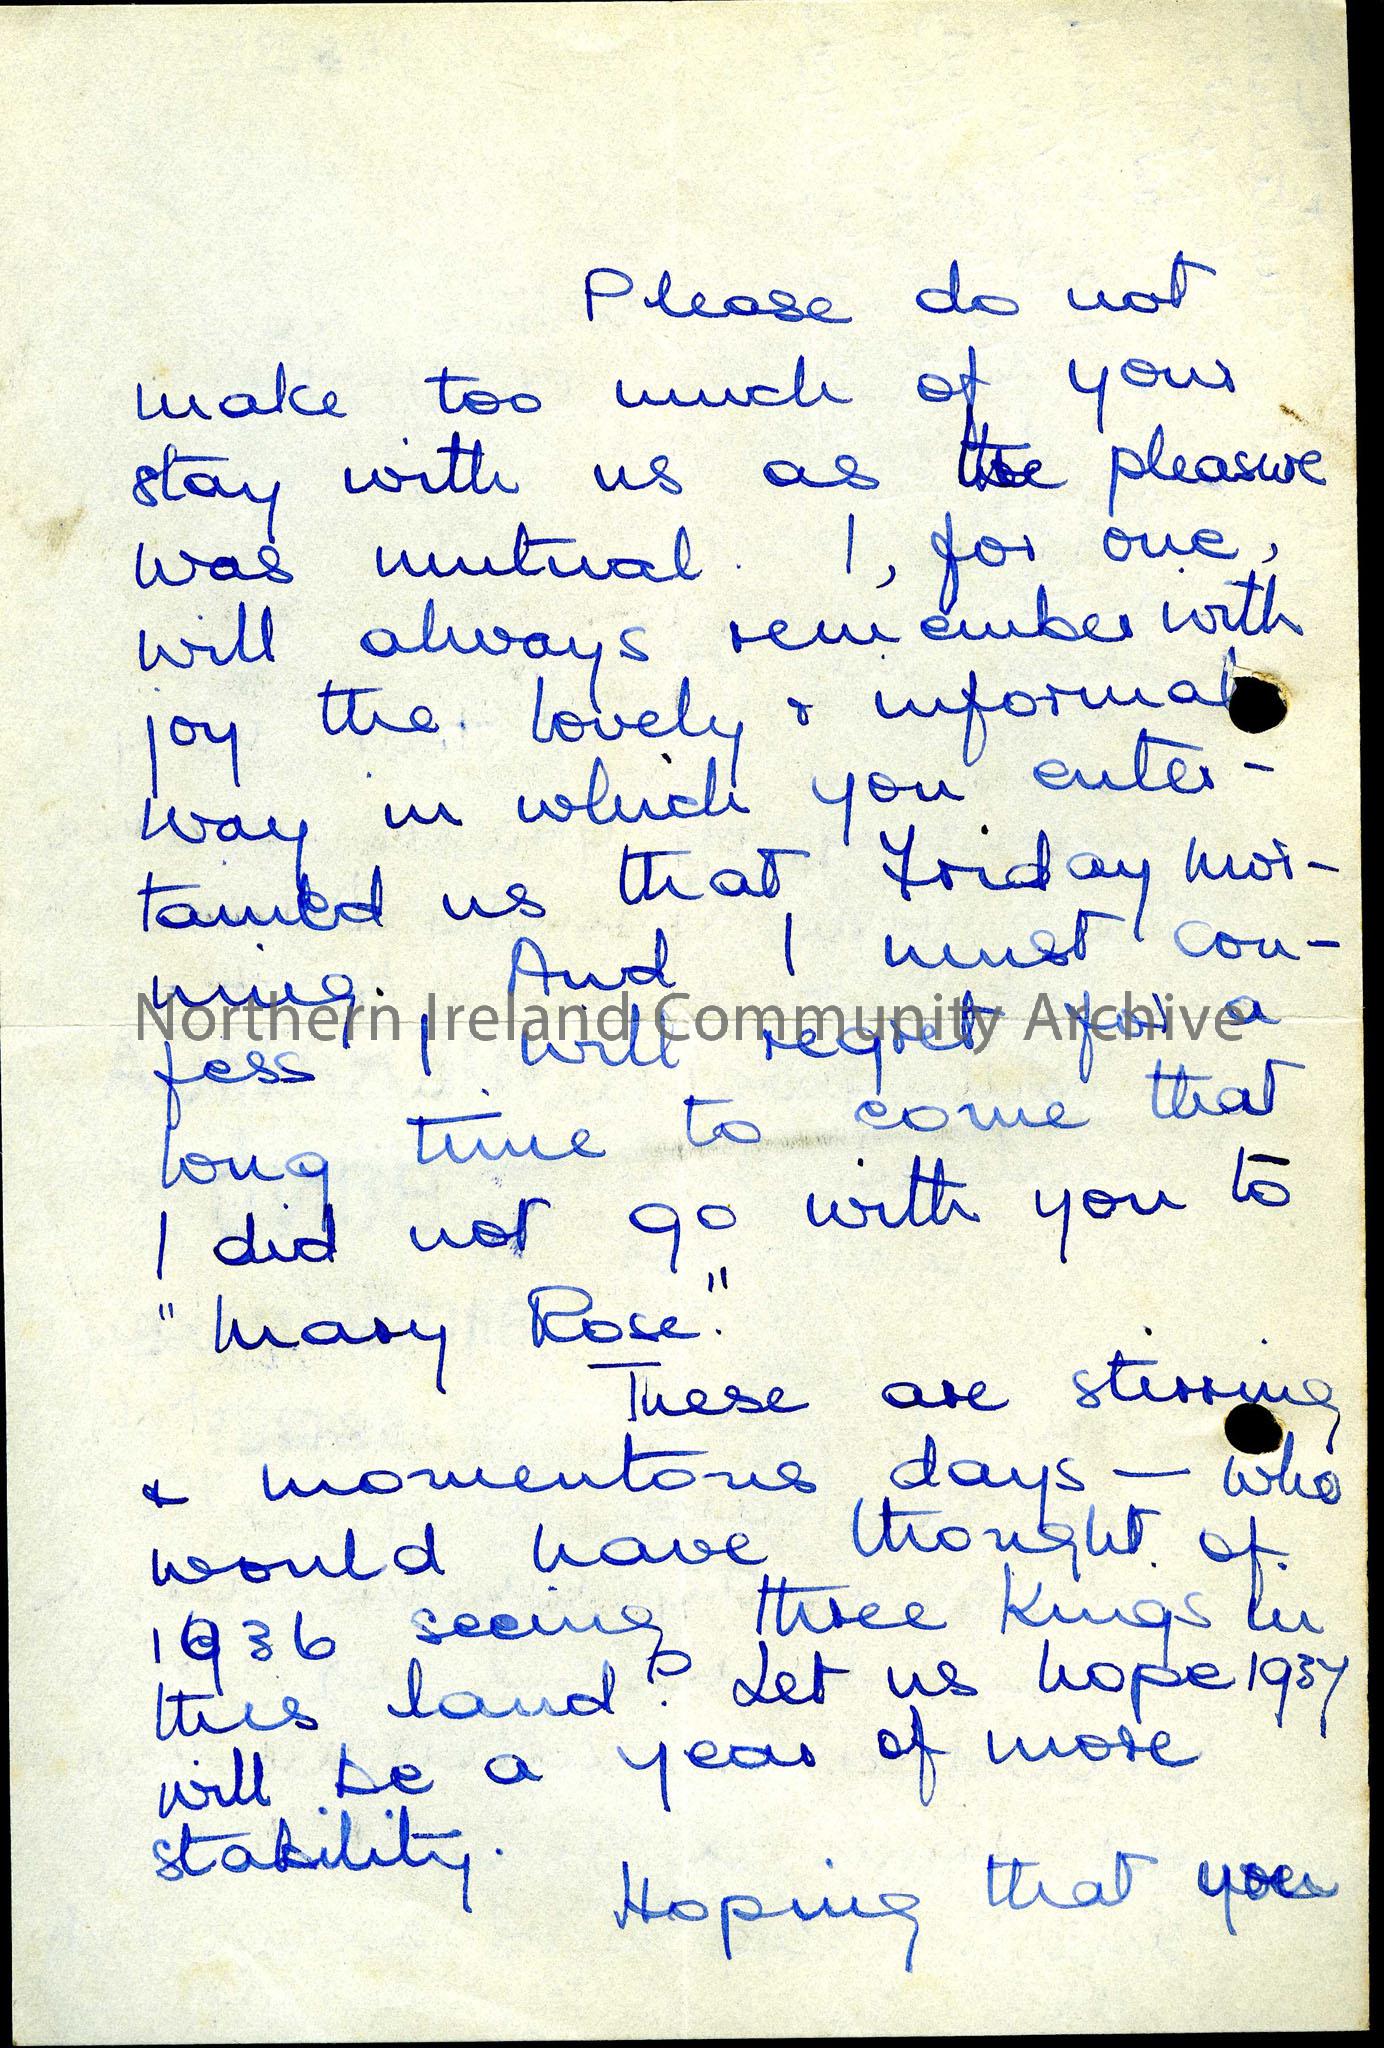 Please do not
make too much of your
stay with us as the pleasure
was mutual. I, for one,
will always remember with
joy the lovely & informal
way in which you enter-
tained us that Friday mor-
ning. And I must con-
Northern Ireland Community Archive
fess I will regret for a
long time to come that
I did not go with you to
"Mary Rose".
These are stirring
& momentous days — who
would have thought of
1936 seeing three Kings in
this land? Let us hope 1937
will be a year of more
stability.
Hoping that you